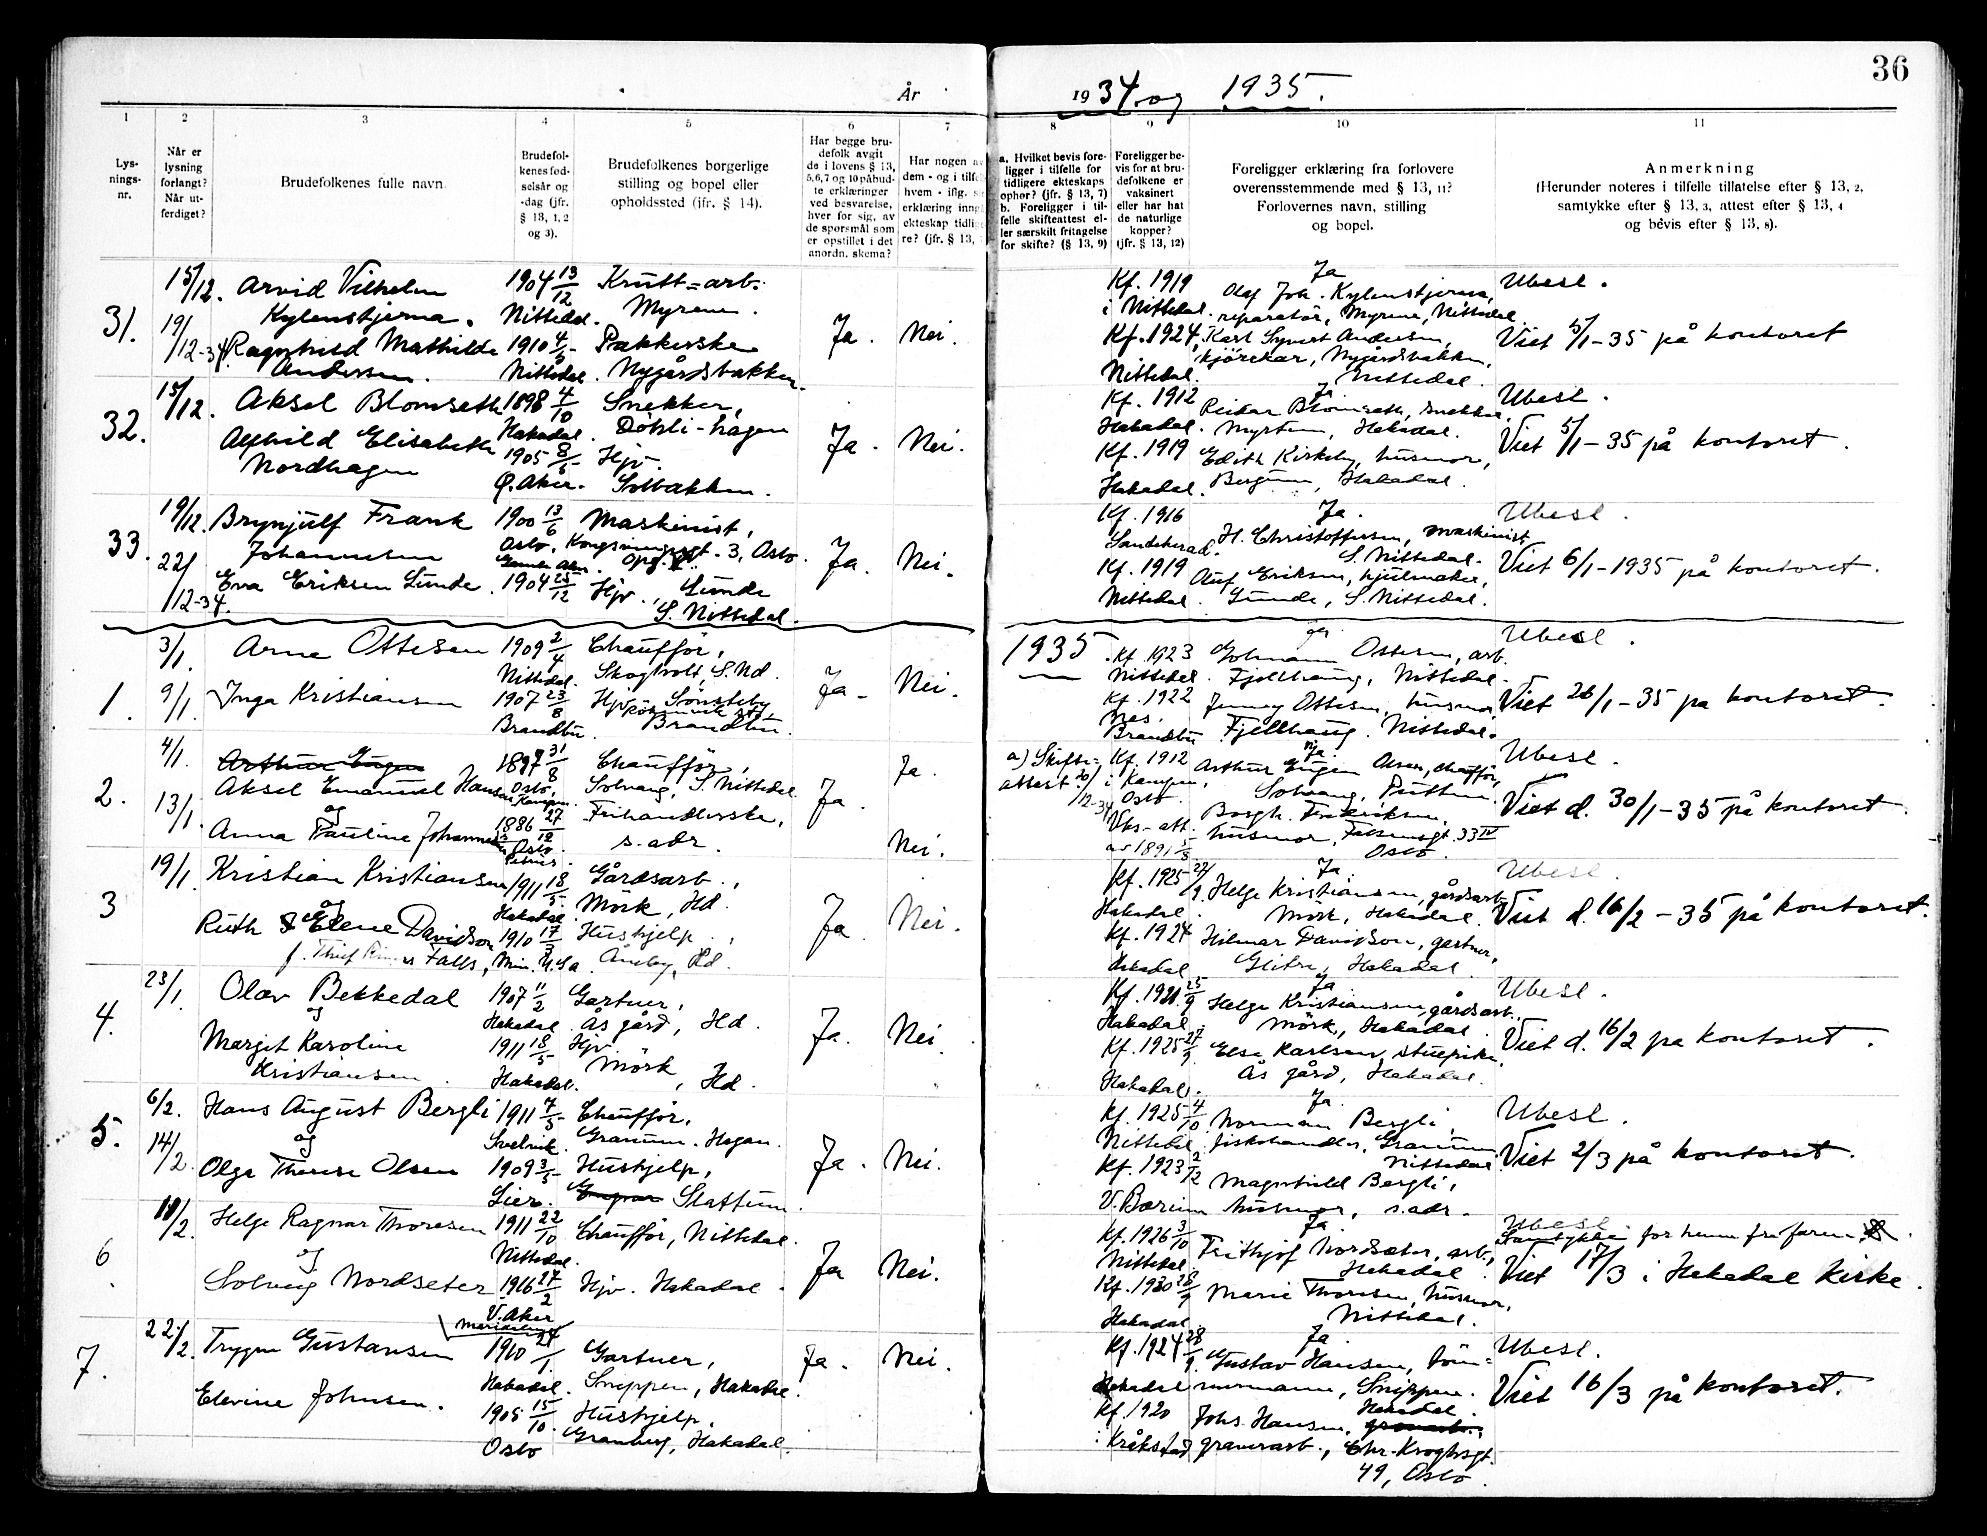 36
År 1934 og 1935.
1 2 3 4 5 6 7 8 9 10 11
Lys-
nings-
nr.
Når er
lysning
forlangt?
Når ut-
ferdiget?
Brudefolkenes fulle navn.
Brudefol-
kenes fød-
selsår og
-dag (jfr.
§ 13, 1, 2
og 3).
Brudefolkenes borgerlige
stilling og bopel eller
opholdssted (jfr. § 14).
Har begge bru-
defolk avgit
de i lovens § 13,
5,6,7 og 10 påbud-
te erklæringer
ved besvarelse,
hver for sig, av
de spørsmål som
er opstillet i det
anordn. skema?
Har nogen av
dem - og i tilfe
hvem - iflg. s
erklæring inng
ekteskap tidlig
re? (jfr. § 13,
a. Hvilket bevis fore-
ligger i tilfelle for
tidligere ekteskaps
ophør? (jfr. § 13, 7)
b. Foreligger i til-
felle skifteattest el-
ler særskilt fritagelse
for skifte? (§ 13, 9)
Foreligger be-
vis for at bru-
defolkene er
vaksinert
eller har hat
de naturlige
kopper?
(jfr. § 13, 12)
Foreligger erklæring fra forlovere
overensstemmende med § 13, 11?
Forlovernes navn, stilling
og bopel.
Anmerkning
(Herunder noteres i tilfelle tillatelse efter § 13, 2,
samtykke efter § 13, 3, attest efter § 13, 4
og bevis efter § 13, 8).
31.
15/12.
19/12-34.
Arvid Vilhelm
Kylenstjerna.
Ragnhild Mathilde
Andersen.
1904 13/12
Nittedal.
1910 4/5
Nittedal.
Krutt-arb.
Myrene.
Pakkerske
Nygårdsbakken.
Ja.
Nei.
Kf. 1919
i Nittedal.
Kf. 1924,
Nittedal.
Ja
Olaf Joh. Kylenstjerna,
reparatør, Myrene, Nittedal
Karl Syvert Andersen,
kjørekar, Nygårdsbakken,
Nittedal.
Ubesl.
Viet 5/1-35 på kontoret
32.
15/12.
Aksel Blomseth
Alfhild Elisabeth
Nordhagen
1898 4/10
Hakadal.
1905 8/5
Ø. Aker.
Snekker,
Døhli-hagen
Hjv.
Solbakken.
Ja.
Nei.
Kf. 1912
Hakadal.
Kf. 1919
Hakadal.
Ja
Reidar Blomseth, snekker.
Myrtun, Hakadal.
Edith Kirkeby, husmor,
Bergum, Hakadal.
Ubesl.
Viet 5/1-35 på kontoret.
33.
19/12.
22/12-34.
Brynjulf Frank
Johannesen
Eva Eriksen Lunde.
1900 13/6
Oslo.
Gamle Aker.
1904 25/12
Maskinist,
Kongsvingergt. 3, Oslo.
Hjv., Lunde
S. Nittedal.
Ja.
Nei.
Kf. 1916
Sandeherad.
Kf. 1919
Nittedal.
Ja.
H. Christoffersen, maskinist
S. Nittedal.
Oluf Eriksen, hjulmaker,
Lunde, S. Nittedal.
Ubesl.
Viet 6/1-1935 på kontoret.
1935
1.
3/1.
9/1.
Arne Ottesen
Inga Kristiansen
1909 2/4
Nittedal.
1907 23/8
Brandbu.
Chauffør,
Skogholt, S. Nd.
Hjv., Sønsteby
Brandbu.
Ja.
Nei.
Kf. 1923
Nittedal
Kf. 1922
Nes.
Brandbu
Ottesen, arb.
Fjellhaug, Nittedal.
Jenny Ottesen, husmor,
Fjellhaug. Nittedal.
Ubesl.
Viet 26/1-35 på kontoret.
2.
4/1.
13/1.
Arthur Eugen
Aksel Emanuel Hansen
og
Anna Pauline Johannesen
1897 31/8
Oslo,
Kampen.
1886 27/12
Oslo
Petrus.
Chauffør,
Solvang, S. Nittedal
Frihandlerske,
s. adr.
Ja.
Ja.
Nei.
a) Skifte-
attest 20/12-34
Kf. 1912
i Kampen,
Oslo.
Vks-att.
av 1891 5/8
Ja.
Arthur Eugen Olsen, chauffør,
Solvang,
Borgh. Fredriksen,
husmor, Falsensgt. 33 IV
Oslo.
Ubesl.
Viet d. 30/1-35 på kontoret.
3
19/1.
Kristian Kristiansen
og
Ruth Elene Davidson
f. Thief River Falls, Min. U.S.a.
1911 18/5
Hakadal.
1910 17/3
Gårdsarb.,
Mörk, Hd.
Hushjelp,
Åneby, Hd.
Ja.
Nei.
Kf. 1925 27/9
Hakadal.
Kf. 1924
Hakadal
Ja.
Helge Kristiansen, gårdsarb.
Mörk, Hakadal.
Hilmar Davidson, gartner,
Glitre, Hakadal.
Ubesl.
Viet d. 16/2-35 på kontoret.
4.
23/1.
Olav Bekkedal
og
Margit Karoline
Kristiansen.
1907 11/2
Hakadal.
1911 18/5
Hakadal.
Gartner,
Ås gård, Hd.
Hjv.
Mörk, Hd.
Ja.
Nei.
Kf. 1921 25/9
Hakadal.
Kf. 1925 27/9.
Hakadal.
Ja
Helge Kristiansen, gårdsarb.,
Mörk, Hakadal.
Else Karlsen, stuepike,
Ås gård, Hakadal.
Ubesl.
Viet d. 16/2 på kontoret.
5.
6/2.
14/2
Hans August Bergli
og
Olga Therese Olsen
1911 7/5
Svelvik.
1909 3/5
Lier.
Chauffør,
Granum. Hagan.
Hushjelp,
Slattum.
Ja.
Nei.
Kf. 1925 4/10
Nittedal.
Kf. 1923 2/12
V. Bærum
Ja.
Norman Bergli,
fiskehandler, Granum
Nittedal.
Magnhild Bergli,
husmor, s. adr.
Ubesl.
Viet 2/3 på kontoret.
6
18/2.
Helge Ragnar Thoresen
og
Solveig Nordseter
1911 22/10
Nittedal.
1916 27/2
V. Aker
Maridalen
Chauffør, Nittedal.
Hjv. Hakadal.
Ja
Nei.
Kf. 1926 3/10
Nittedal
Kf. 1930 28/9
Hakadal.
Ja.
Frithjof Nordseter, arb.,
Hakadal.
Marie Thoresen, husmor,
Nittedal.
Ubesl.
Samtykke for henne fra faren.
Viet 17/3 i Hakadal Kirke.
7.
22/2.
Trygve Gustavsen
Elevine Johnsen.
1910 24/1
Hakadal.
1905 15/10
Oslo
Gartner,
Snippen, Hakadal.
Hushjelp,
Granberg, Hakadal.
Ja.
Nei.
Kf. 1924 28/9.
Hakadal
Kf. 1920
i Kråkstad
Ja.
Gustav Hansen, töm-
mermann, Snippen.
Hakadal.
Johs. Hansen,
graverarb., Chr. Kroghsgt.
49, Oslo.
Ubesl.
Viet 16/3 på kontoret.